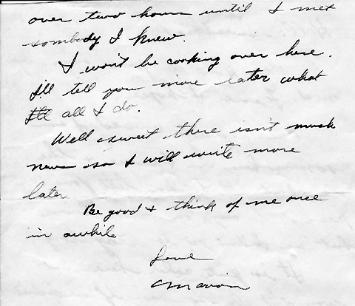 over two hours until I met
sombody I knew.
I won't be cooking over here.
I'll tell you more later what
I'll all I do.
Well sweet there isn't much
news so I will write more
later
Be good + think of me once
in awhile
Love
Marion